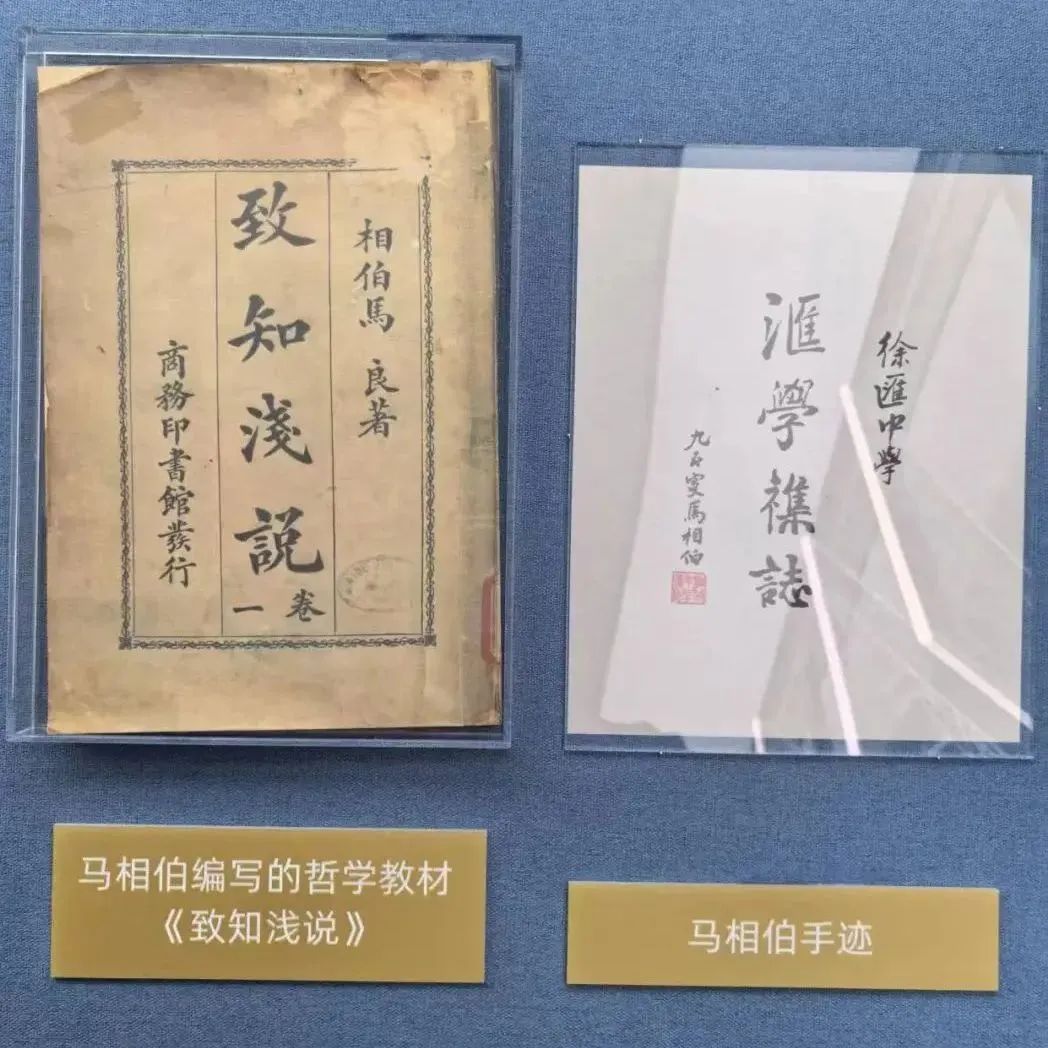 相伯馬良著
致知淺説
卷一
商務印書館發行
徐匯中學
滙學襍誌
九五叟馬相伯
马相伯编写的哲学教材
《致知浅说》
马相伯手迹